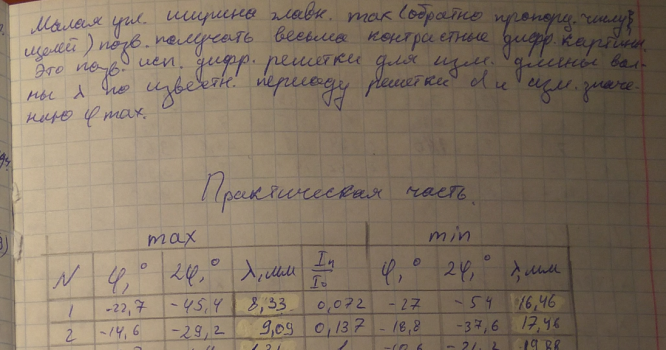 Малая угл. ширина главн. max (обратно пропорц. числу
щелей) позв. получать весьма контрастные дифр. картины.
Это позв. исп. дифр. решетки для изм. длины вол-
ны λ по известн. периоду решетки d и изм. значе-
нию φ max.
Практическая часть.
max min
N φ,° 2φ,° λ, мм Iп/I₀ φ,° 2φ,° λ, мм
1 -22,7 -45,4 8,33 0,072 -27 -54 16,46
2 -14,6 -29,2 9,09 0,137 -18,8 -37,6 17,46